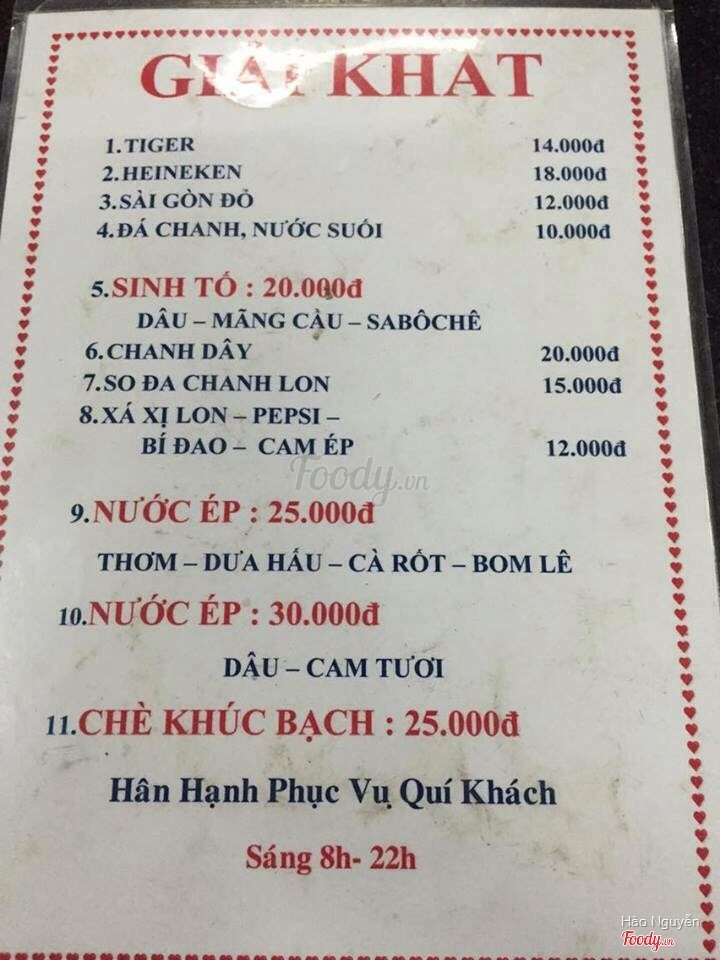 GIẢI KHAT
1.TIGER 14.000đ
2.HEINEKEN 18.000đ
3.SÀI GÒN ĐỎ 12.000đ
4.ĐÁ CHANH, NƯỚC SUỐI 10.000đ
5.SINH TỐ : 20.000đ
DÂU – MÃNG CẦU – SABÔCHÊ
6.CHANH DÂY 20.000đ
7.SO ĐA CHANH LON 15.000đ
8.XÁ XỊ LON – PEPSI –
BÍ ĐAO – CAM ÉP 12.000đ
Foody.vn
9.NƯỚC ÉP : 25.000đ
THƠM – DƯA HẤU – CÀ RỐT – BOM LÊ
10.NƯỚC ÉP : 30.000đ
DÂU – CAM TƯƠI
11.CHÈ KHÚC BẠCH : 25.000đ
Hân Hạnh Phục Vụ Quí Khách
Sáng 8h- 22h
Hảo Nguyễn
Foody.vn